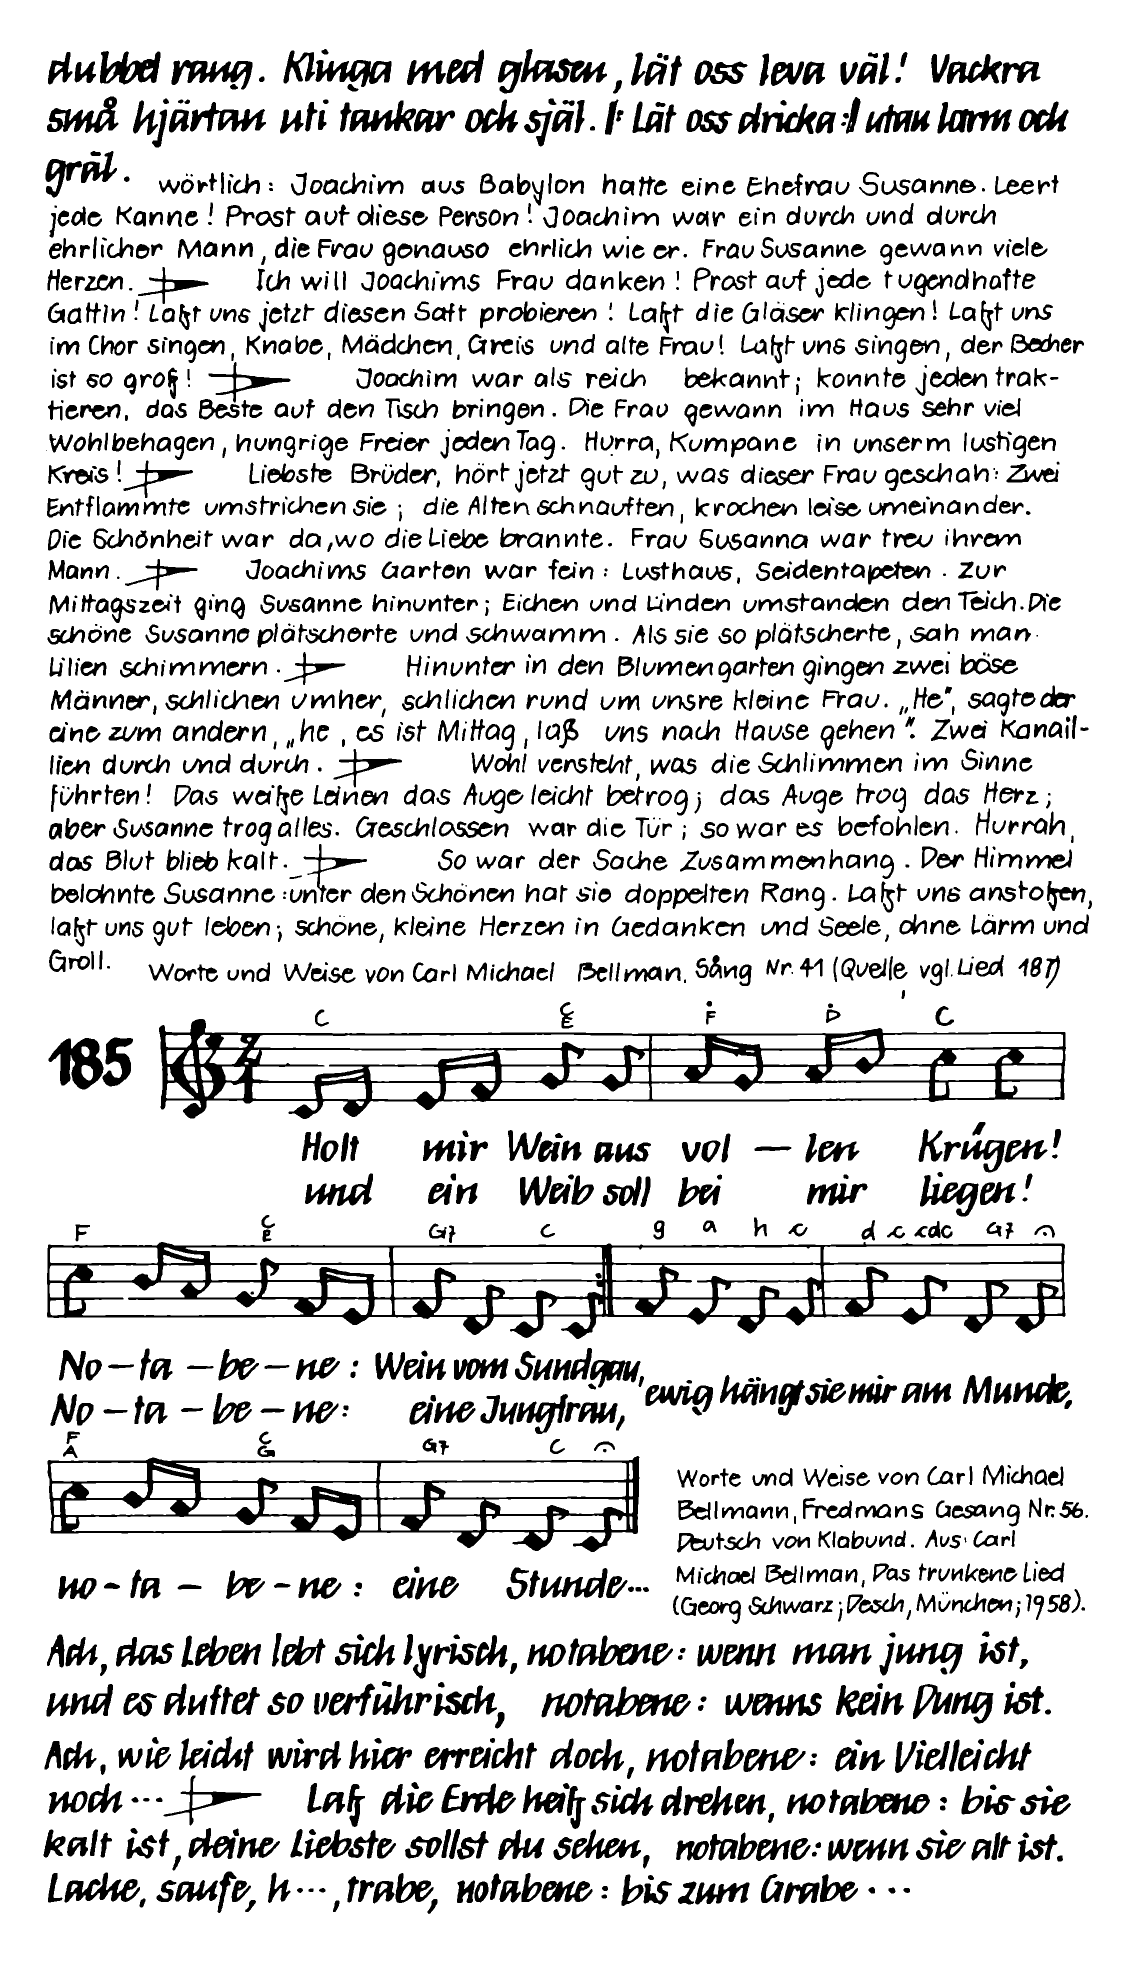 dubbel rang. Klinga med glasen, lät oss leva väl! Vackra
små hjärtan uti tankar och själ. |: Lät oss dricka :| utan larm och
gräl.
wörtlich: Joachim aus Babylon hatte eine Ehefrau Susanne. Leert
jede Kanne! Prost auf diese Person! Joachim war ein durch und durch
ehrlicher Mann, die Frau genauso ehrlich wie er. Frau Susanne gewann viele
Herzen. Ich will Joachims Frau danken! Prost auf jede tugendhafte
Gattin! Laßt uns jetzt diesen Saft probieren! Laßt die Gläser klingen! Laßt uns
im Chor singen, Knabe, Mädchen, Greis und alte Frau! Laßt uns singen, der Becher
ist so groß! Joachim war als reich bekannt; konnte jeden trak-
tieren, das Beste auf den Tisch bringen. Die Frau gewann im Haus sehr viel
Wohlbehagen, hungrige Freier jeden Tag. Hurra, Kumpane in unserm lustigen
Kreis! Liebste Brüder, hört jetzt gut zu, was dieser Frau geschah: Zwei
Entflammte umstrichen sie; die Alten schnauften, krochen leise umeinander.
Die Schönheit war da, wo die Liebe brannte. Frau Susanna war treu ihrem
Mann. Joachims Garten war fein: Lusthaus, Seidentapeten. Zur
Mittagszeit ging Susanne hinunter; Eichen und Linden umstanden den Teich. Die
schöne Susanne plätscherte und schwamm. Als sie so plätscherte, sah man
Lilien schimmern. Hinunter in den Blumengarten gingen zwei böse
Männer, schlichen umher, schlichen rund um unsre kleine Frau. „He", sagte der
eine zum andern, „he, es ist Mittag, laß uns nach Hause gehen". Zwei Kanail-
lien durch und durch. Wohl versteht, was die Schlimmen im Sinne
führten! Das weiße Leinen das Auge leicht betrog; das Auge trog das Herz;
aber Susanne trog alles. Geschlossen war die Tür; so war es befohlen. Hurrah,
das Blut blieb kalt. So war der Sache Zusammenhang. Der Himmel
belohnte Susanne: unter den Schönen hat sie doppelten Rang. Laßt uns anstoßen,
laßt uns gut leben; schöne, kleine Herzen in Gedanken und Seele, ohne Lärm und
Groll. Worte und Weise von Carl Michael Bellman. Sång Nr. 41 (Quelle vgl. Lied 187)
C C E F D C
185
Holt mir Wein aus vol – len Krügen!
und ein Weib soll bei mir liegen!
F C E G7 C g a h c d c cdc G7
No – ta – be – ne: Wein vom Sundgau,
No – ta – be – ne: eine Jungfrau,
ewig hängt sie mir am Munde,
F A C G G7 C
no – ta – be – ne: eine Stunde...
Worte und Weise von Carl Michael
Bellmann, Fredmans Gesang Nr. 56.
Deutsch von Klabund. Aus: Carl
Michael Bellman, Das trunkene Lied
(Georg Schwarz; Desch, München; 1958).
Ach, das Leben lebt sich lyrisch, notabene: wenn man jung ist,
und es duftet so verführisch, notabene: wenns kein Dung ist.
Ach, wie leicht wird hier erreicht doch, notabene: ein Vielleicht
noch... Laß die Erde heiß sich drehen, notabene: bis sie
kalt ist, deine Liebste sollst du sehen, notabene: wenn sie alt ist.
Lache, saufe, h..., trabe, notabene: bis zum Grabe...